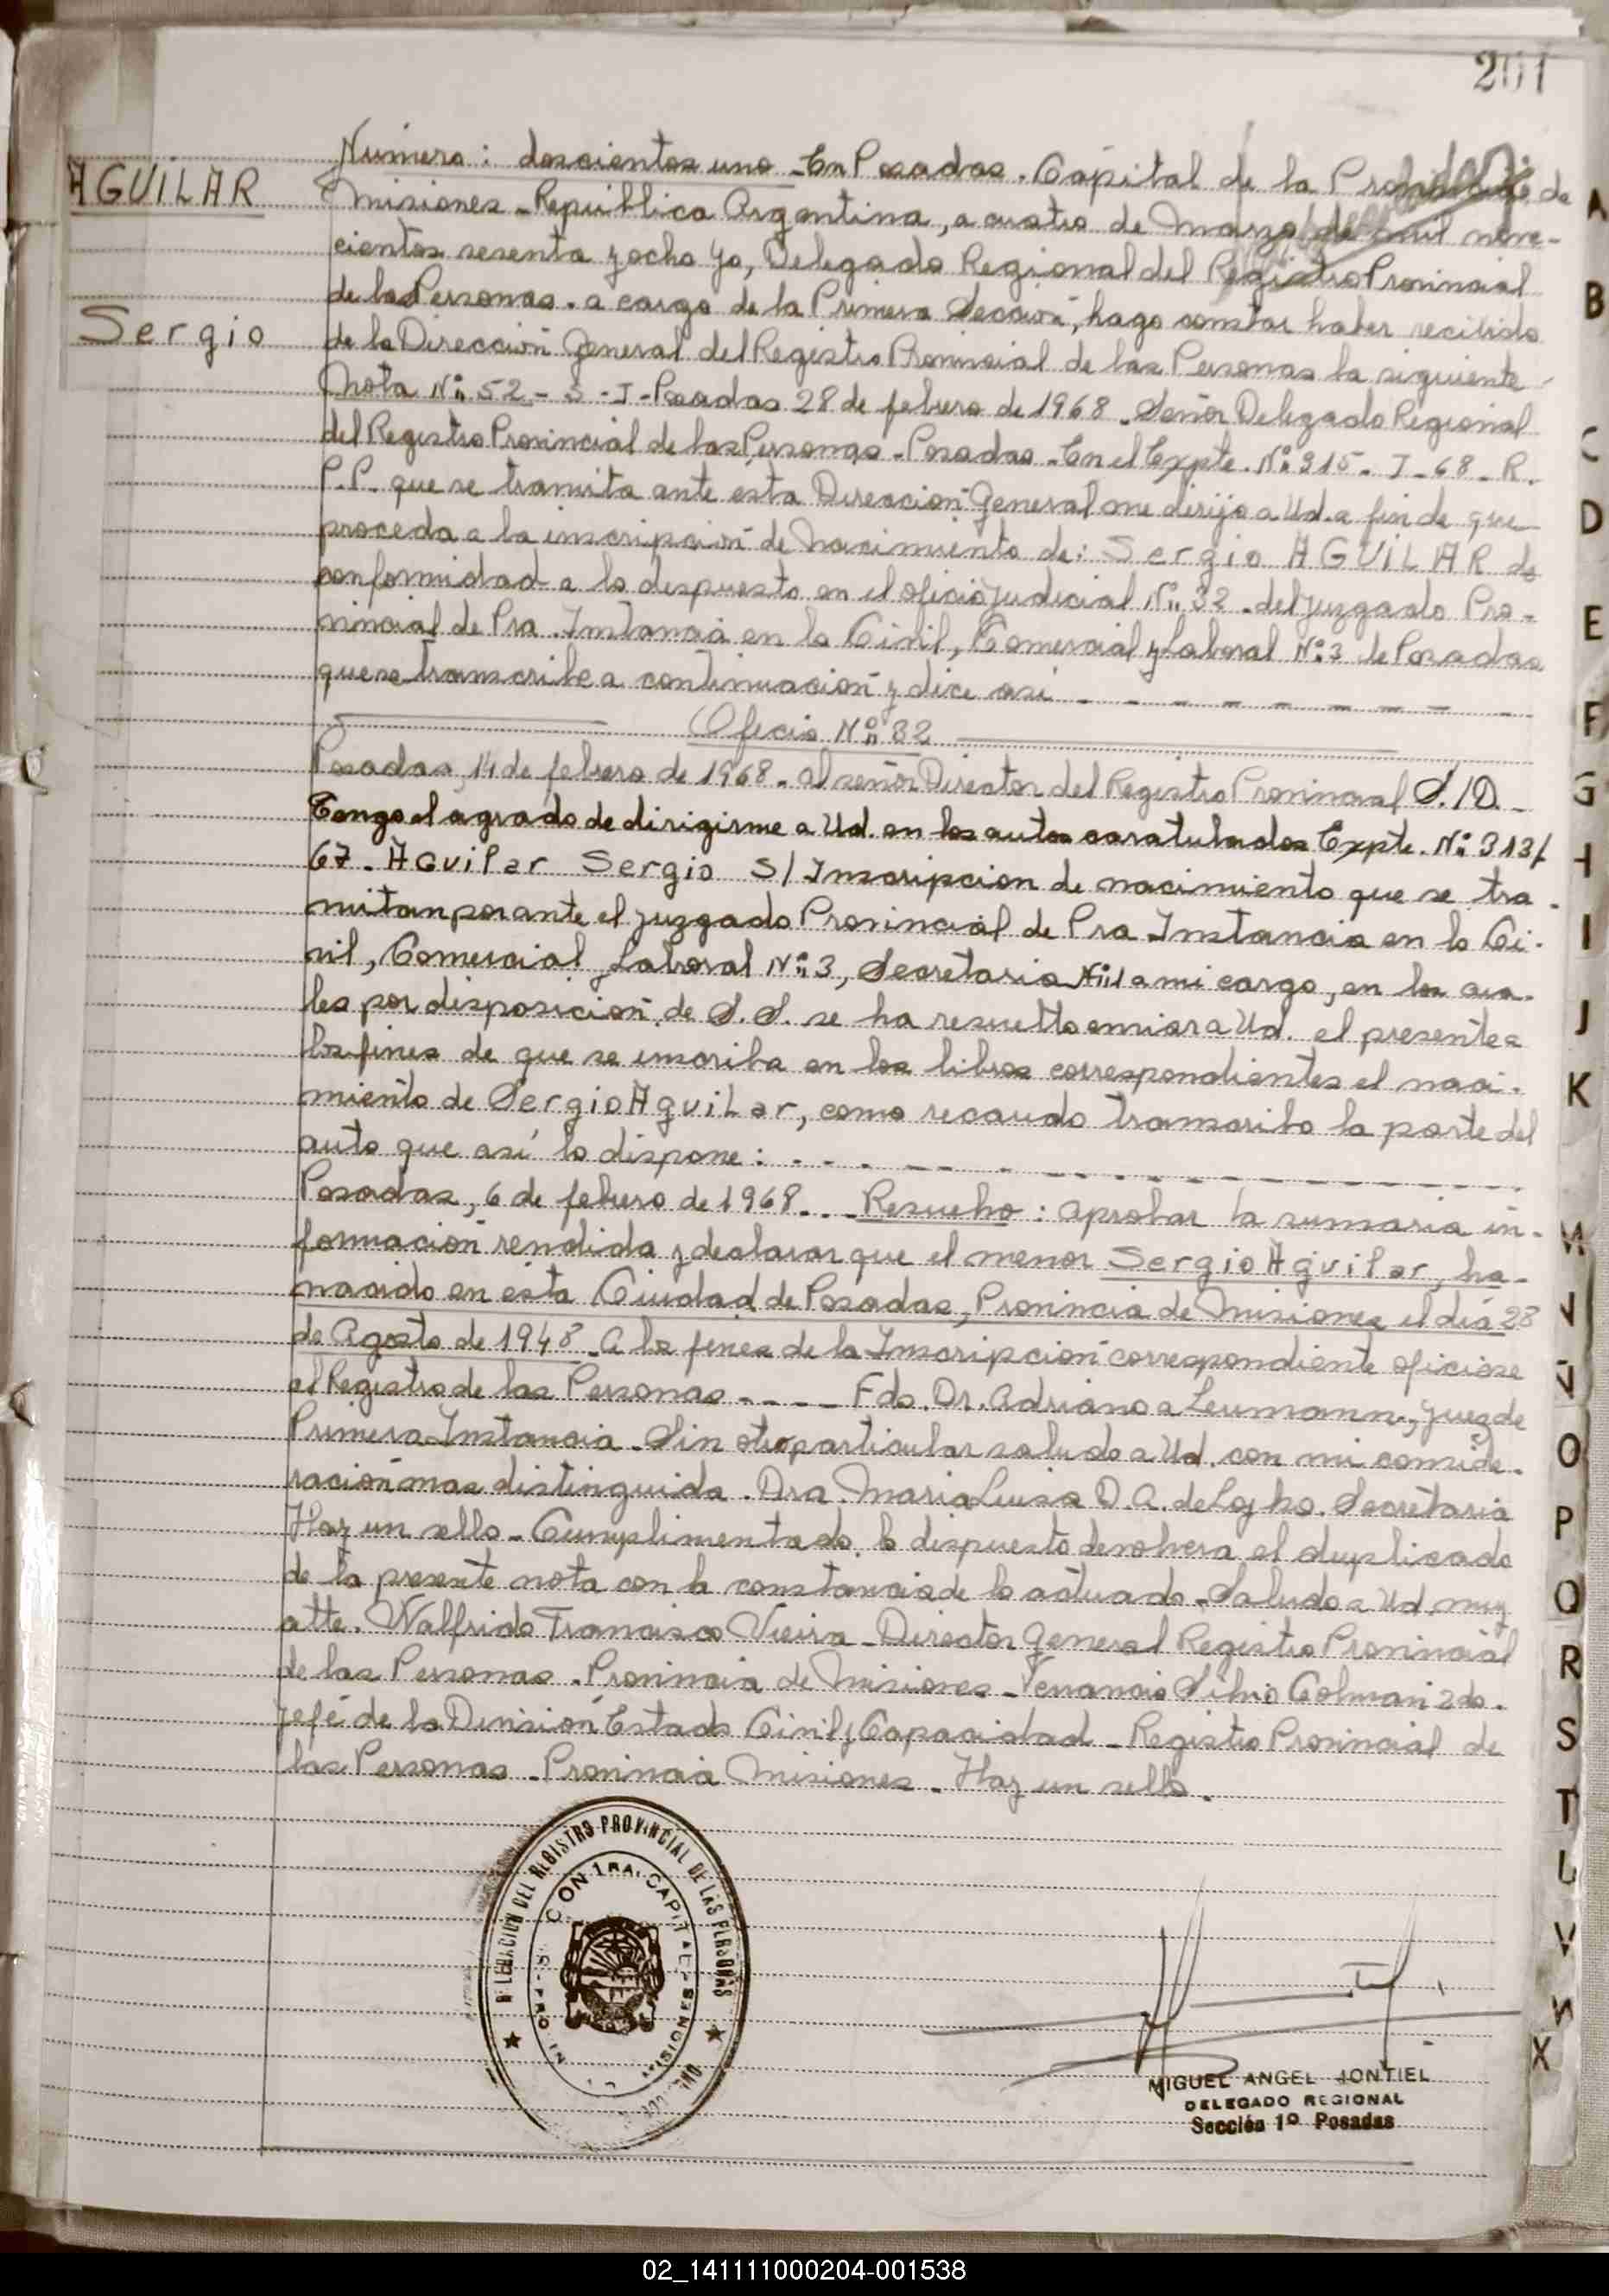 201
AGUILAR
Sergio
Número: doscientos uno - En Posadas. Capital de la Provincia de
Misiones - República Argentina, a cuatro de Marzo de mil nove-
cientos sesenta y ocho Yo, Delegado Regional del Registro Provincial
de las Personas. a cargo de la Primera Sección, hago constar haber recibido
de la Dirección General del Registro Provincial de las Personas la siguiente
Nota Nº 52 - S - I - Posadas 28 de febrero de 1968 - Señor Delegado Regional
del Registro Provincial de las Personas - Posadas - En el Expte. Nº 315 - I - 68 - R.
P.P. que se tramita ante esta Dirección General me dirijo a Ud. a fin de que
proceda a la inscripción de Nacimiento de: Sergio AGUILAR de
conformidad a lo dispuesto en el oficio judicial Nº 32 - del Juzgado Pro-
vincial de Pra. Instancia en lo Civil, Comercial y Laboral Nº 3 de Posadas
que se transcribe a continuación y dice así - - - - - - - - -
Oficio Nº 32
Posadas, 14 de febrero de 1968 - al señor Director del Registro Provincial S./D. -
Tengo el agrado de dirigirme a Ud. en los autos caratulados Expte. Nº 313/
67 - Aguilar Sergio S/ Inscripción de nacimiento que se tra-
mitan por ante el Juzgado Provincial de Pra Instancia en lo Ci-
vil, Comercial y Laboral Nº 3, Secretaria Nº 1 a mi cargo, en los cua-
les por disposición de S.S. se ha resuelto enviar a Ud. el presente a
los fines de que se inscriba en los libros correspondientes el naci-
miento de Sergio Aguilar, como recaudo transcribo la parte del
auto que así lo dispone: - - - - - - - - - - - -
Posadas, 6 de febrero de 1968. - - Resuelvo: aprobar la sumaria in-
formación rendida y declarar que el menor Sergio Aguilar, ha
nacido en esta Ciudad de Posadas, Provincia de Misiones el día 28
de Agosto de 1948 - A los fines de la Inscripción correspondiente oficiese
al Registro de las Personas - - - - Fdo. Dr. Adriano a Leumann, Juez de
Primera Instancia - Sin otro particular saludo a Ud. con mi conside-
ración mas distinguida. Dra. Maria Luisa D A. de Secretaria
Hay un sello - Cumplimentado lo dispuesto devolvera el duplicado
de la presente nota con la constancia de lo actuado - Saludo a Ud muy
atte. Walfrido Francisco Vieira - Director General Registro Provincial
de las Personas - Provincia de Misiones - Venancio Silvio Colman 2do.
Jefe de la División Estado Civil y Capacidad - Registro Provincial de
las Personas - Provincia Misiones - Hay un sello.
DELEGACION DEL REGISTRO PROVINCIAL DE LAS PERSONAS
CION 1RA. CAPITAL
MISIONES
MIGUEL ANGEL MONTIEL
DELEGADO REGIONAL
Sección 1º Posadas
A
B
C
D
E
F
G
H
I
J
K
M
N
Ñ
O
P
Q
R
S
T
U
V
W
X
02_141111000204-001538